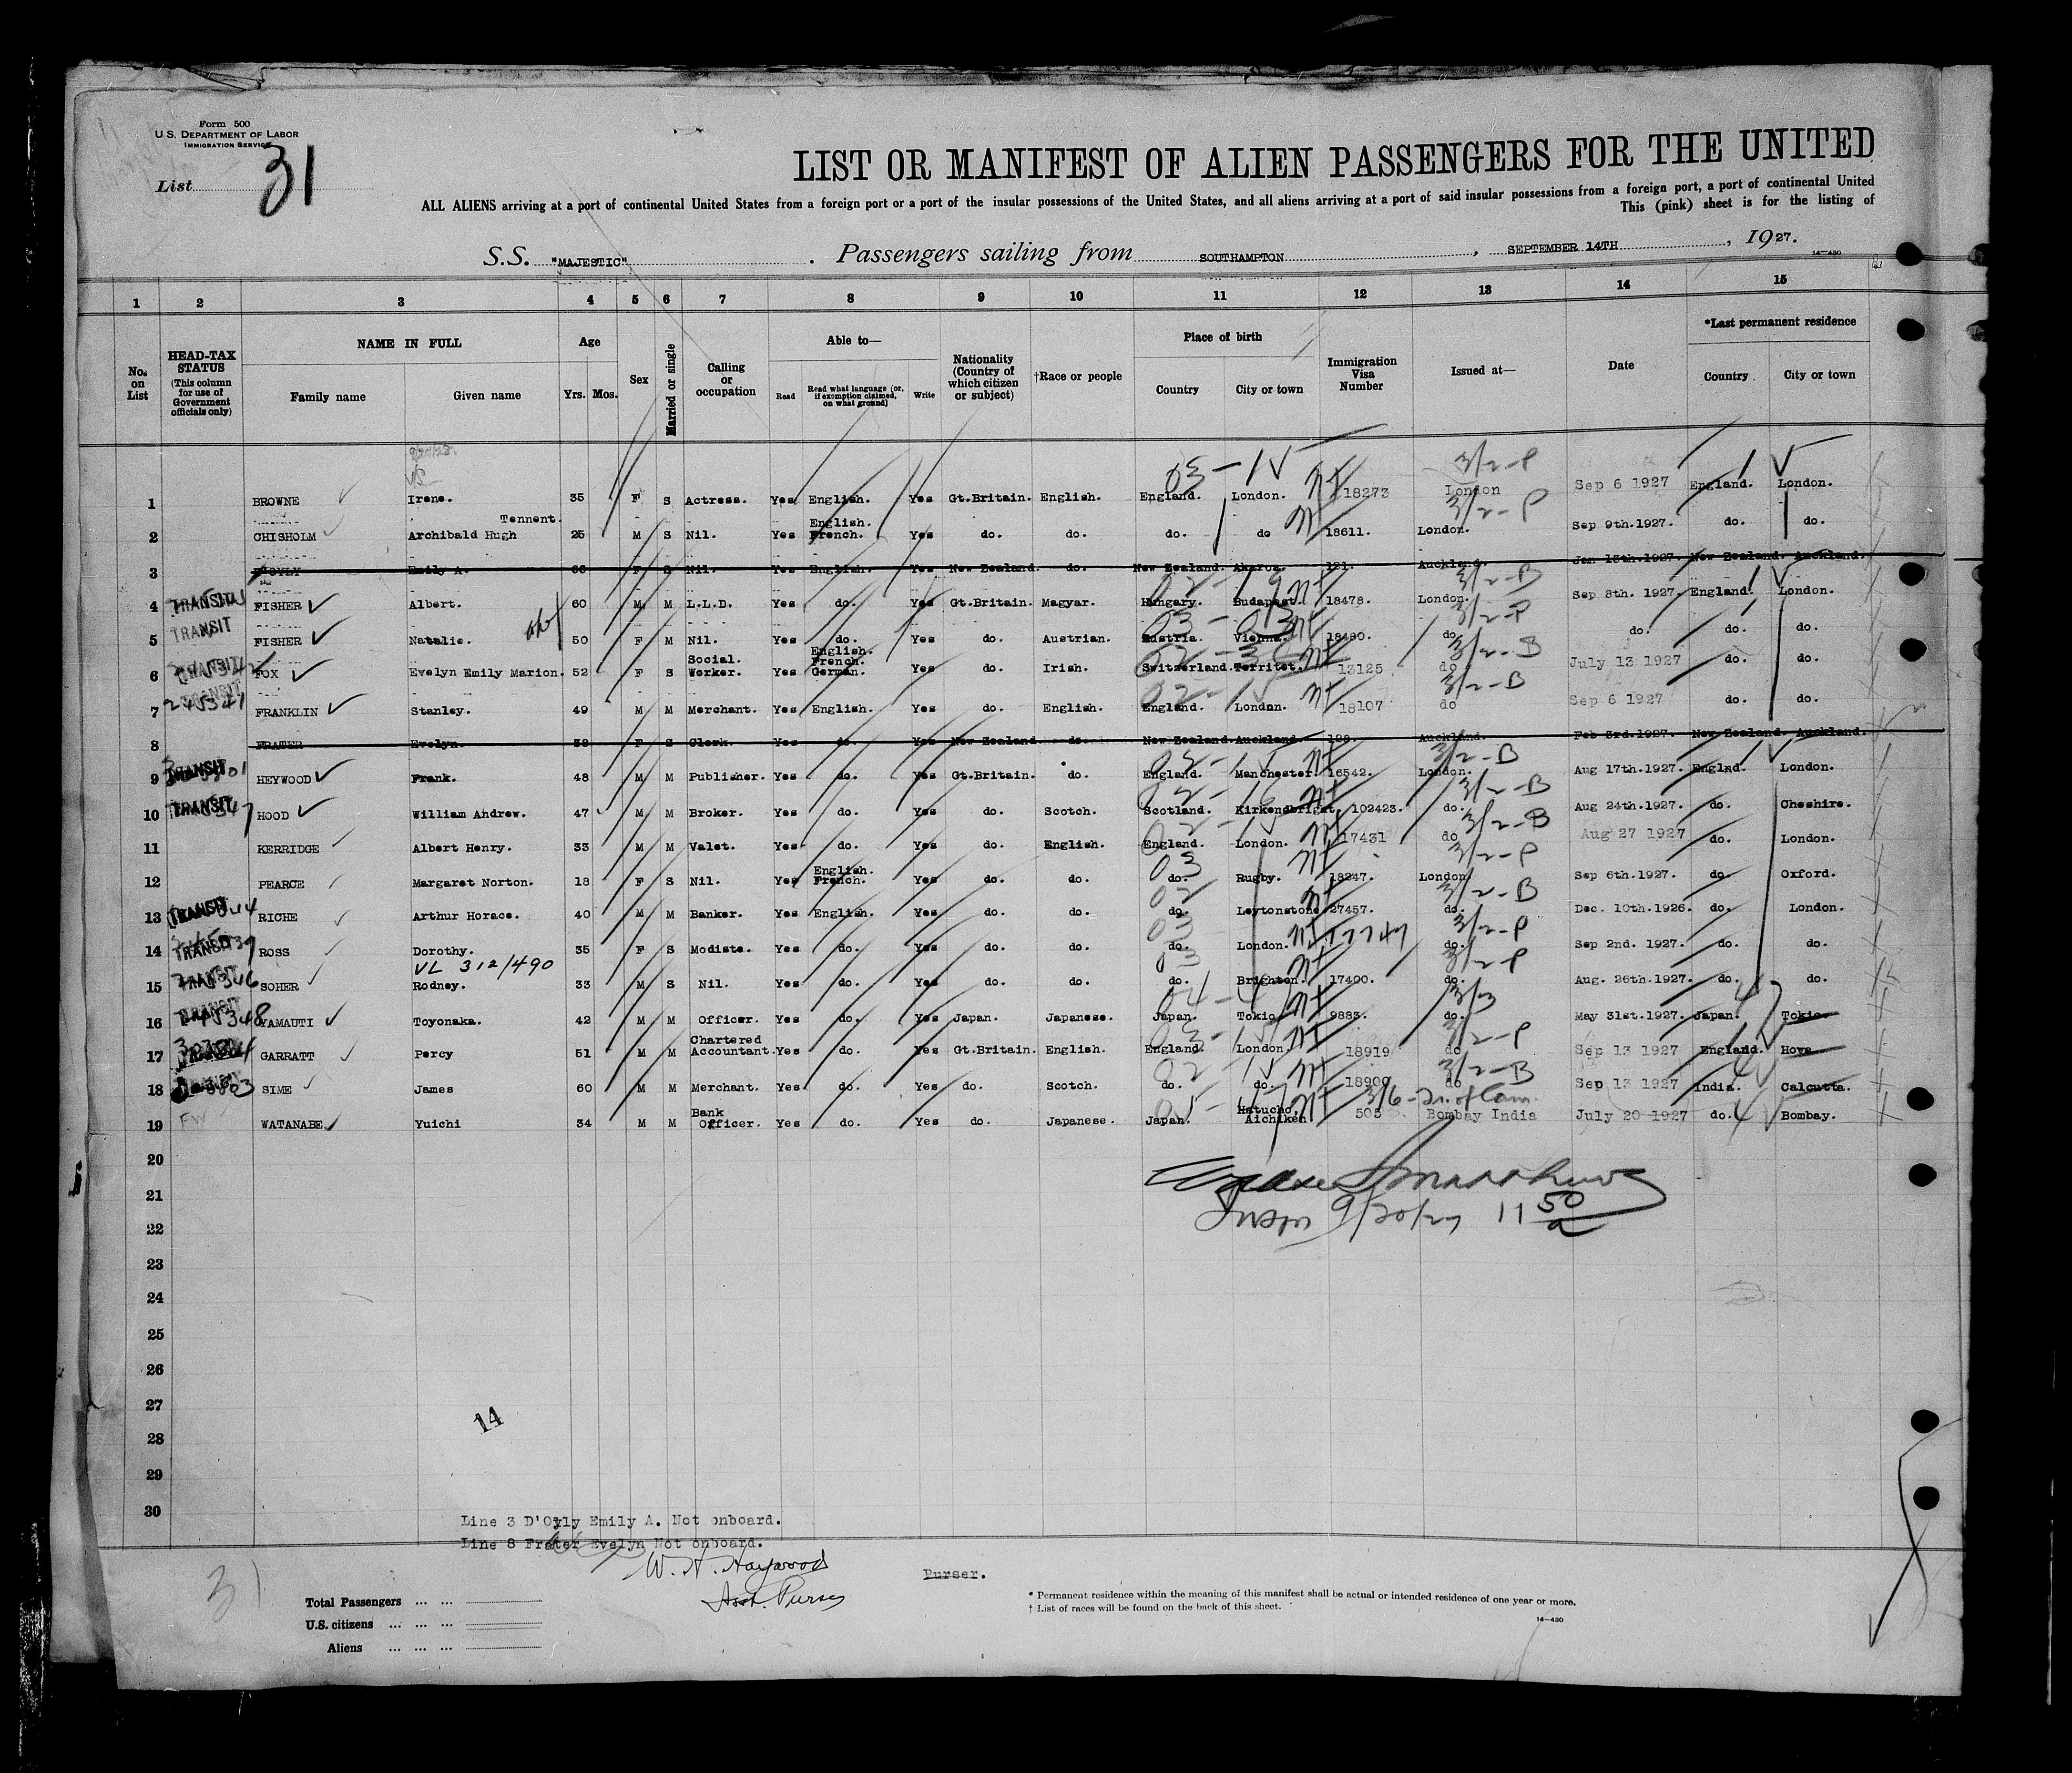 Form 500
U.S. DEPARTMENT OF LABOR
IMMIGRATION SERVICE
List 31
LIST OR MANIFEST OF ALIEN PASSENGERS FOR THE UNITED
ALL ALIENS arriving at a port of continental United States from a foreign port or a port of the insular possessions of the United States, and all aliens arriving at a port of said insular possessions from a foreign port, a port of continental United
This (pink) sheet is for the listing of
S.S. "MAJESTIC". Passengers sailing from SOUTHAMPTON, SEPTEMBER 14TH, 1927.
14-430
1 2 3 4 5 6 7 8 9 10 11 12 13 14 15
No. on List
HEAD-TAX STATUS (This column for use of Government officials only)
NAME IN FULL
Family name Given name
Age
Yrs. Mos.
Sex
Married or single
Calling or occupation
Able to—
Read Read what language (or, if exemption claimed, on what ground) Write
Nationality (Country of which citizen or subject)
†Race or people
Place of birth
Country City or town
Immigration Visa Number
Issued at—
Date
*Last permanent residence
Country City or town
1 BROWNE Irene. 35 F S Actress. Yes English. Yes Gt.Britain. English. England. London. 18273 London Sep 6 1927 England. London.
2 CHISHOLM Archibald Hugh Tennent. 25 M S Nil. Yes English. French. Yes do. do. do. do 18611. London. Sep 9th.1927. do. do.
3 D'OYLY Emily A. 66 F S Nil. Yes English. Yes New Zealand. do. New Zealand. Akaroa. 121. Auckland. Jan 13th.1927. New Zealand. Auckland.
4 TRANSIT FISHER Albert. 60 M M L.L.D. Yes do. Yes Gt.Britain. Magyar. Hungary. Budapest. 18478. London. Sep 8th. 1927. England. London.
5 TRANSIT FISHER Natalie. 50 F M Nil. Yes do. Yes do. Austrian. Austria. Vienna. 18480. do. do. do. do.
6 TRANSIT FOX Evelyn Emily Marion. 52 F S Social. Worker. Yes English. French. German. Yes do. Irish. Switzerland. Territet. 13125 do July 13 1927 do. do.
7 TRANSIT FRANKLIN Stanley. 49 M M Merchant. Yes English. Yes do. English. England. London. 18107 do Sep 6 1927 do. do.
8 FRATER Evelyn. 38 F S Clerk. Yes do. Yes New Zealand do. New Zealand. Auckland. Auckland. Feb 3rd.1927. New Zealand. Auckland.
9 TRANSIT HEYWOOD Frank. 48 M M Publisher. Yes do. Yes Gt.Britain. do. England. Manchester. 16542. London. Aug 17th.1927. Englnd. London.
10 TRANSIT HOOD William Andrew. 47 M M Broker. Yes do. Yes do. Scotch. Scotland. Kirkendbright. 102423. do. Aug 24th.1927. do. Cheshire.
11 KERRIDGE Albert Henry. 33 M M Valet. Yes do. Yes do. English. England. London. 17431 do Aug 27 1927 do. London.
12 PEARCE Margaret Norton. 18 F S Nil. Yes English. French. Yes do. do. do. Rugby. 18247. London Sep 6th.1927. do. Oxford.
13 TRANSIT RICHE Arthur Horace. 40 M M Banker. Yes English. Yes do. do. do. Leytonstone 27457. do. Dec. 10th.1926. do. London.
14 TRANSIT ROSS Dorothy. 35 F S Modiste. Yes do. Yes do. do. do. London. 17747 do. Sep 2nd. 1927. do. do.
VL 312/490
15 TRANSIT SOHER Rodney. 33 M S Nil. Yes do. Yes do. do. do. Brighton. 17400. do. Aug. 26th.1927. do. do.
16 TRANSIT YAMAUTI Toyonaka. 42 M M Officer. Yes do. Yes Japan. Japanese. Japan. Tokio. 9883. do. May 31st.1927. Japan. Tokio.
17 GARRATT Percy 51 M M Chartered Accountant. Yes do. Yes Gt.Britain. English. England London. 18919 do Sep 13 1927 England. Hove
18 SIME James 60 M M Merchant. Yes do. Yes do. Scotch. do. do. 18900 do Sep 13 1927 India. Calcutta.
19 WATANABE Yuichi 34 M M Bank Officer. Yes do. Yes do. Japanese. Japan. Hatucho, Aichiken 503 Bombay India July 20 1927 do. Bombay.
20
21
22
23
24
25
26
27
28
29
30
14
Line 3 D'Oyly Emily A. Not onboard.
Line 8 Frater Evelyn Not onboard.
W. H. Haywood
Asst. Purser
Purser.
31
Total Passengers ... ...
U.S. citizens ... ... ...
Aliens ... ... ...
* Permanent residence within the meaning of this manifest shall be actual or intended residence of one year or more.
† List of races will be found on the back of this sheet.
14-430